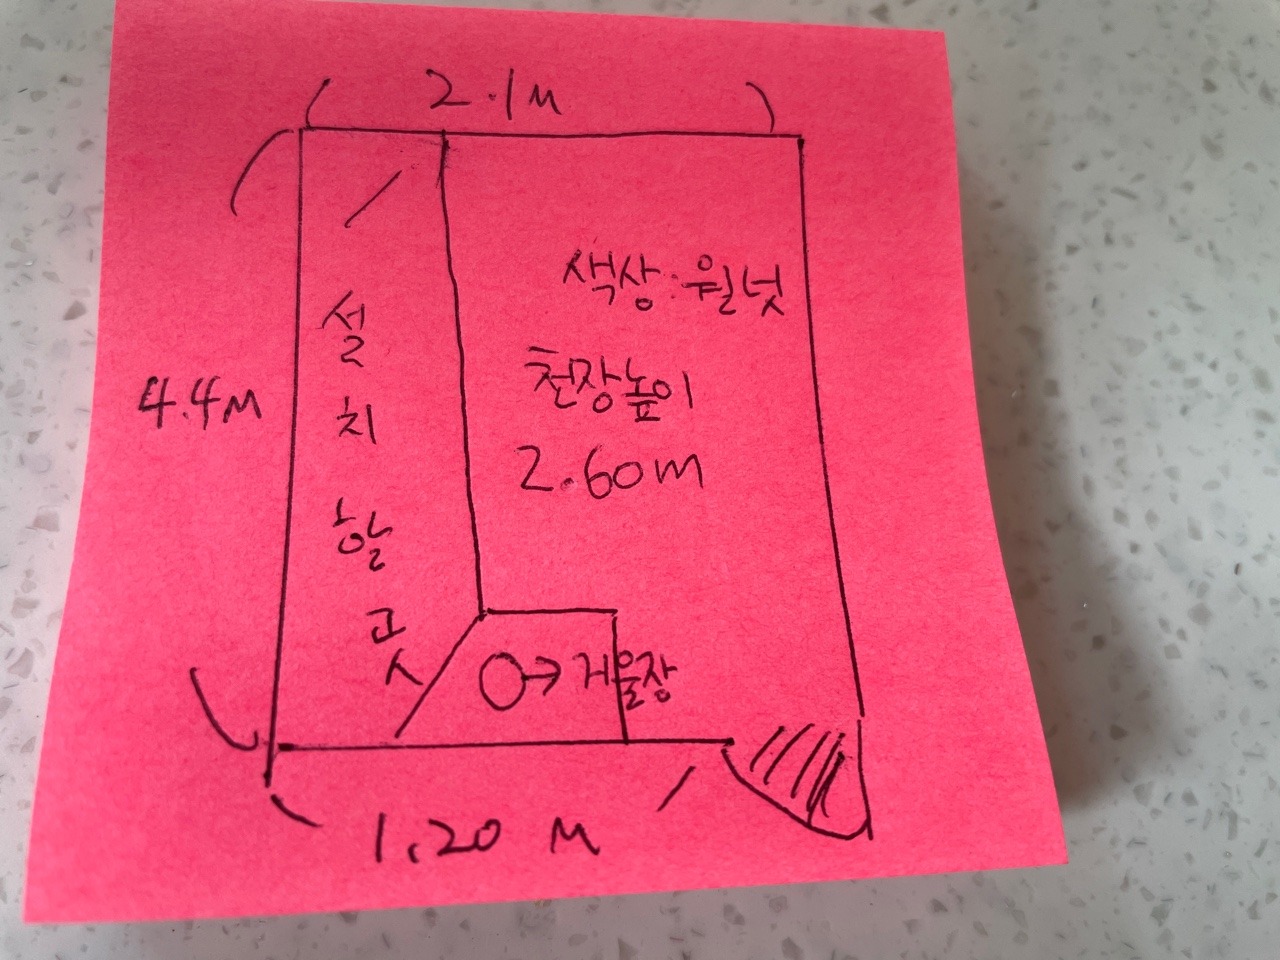 2.1M
색상:월넛
천장높이
2.60m
4.4M
설치할곳
거울장
1.20 M